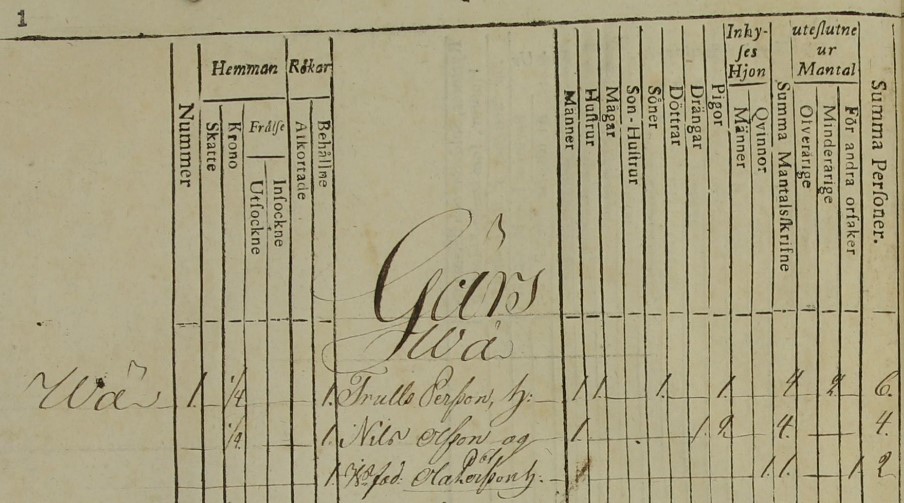 1
Nummer
Hemman
Skatte
Krono
Frälse
Utsockne
Insockne
Rökar
Afkortade
Behållne
Männer
Hustrur
Mågar
Son-Hustrur
Söner
Döttrar
Drängar
Pigor
Inhy-
ses
Hjon
Männer
Qvinnor
Summa Mantalsskrifne
uteslutne
ur
Mantal
Ofverårige
Minderårige
För andra orsaker
Summa Personer.
Gärs
Wä
Wä 1. 1/4 1. Trulls Persson, h: 1 1. 1. 1. 4 2 6.
1/4 1. Nils Olsson og 1. 1. 2 4. 4.
1. fad: Ola Persson h. 1 1. 1. 1. 2